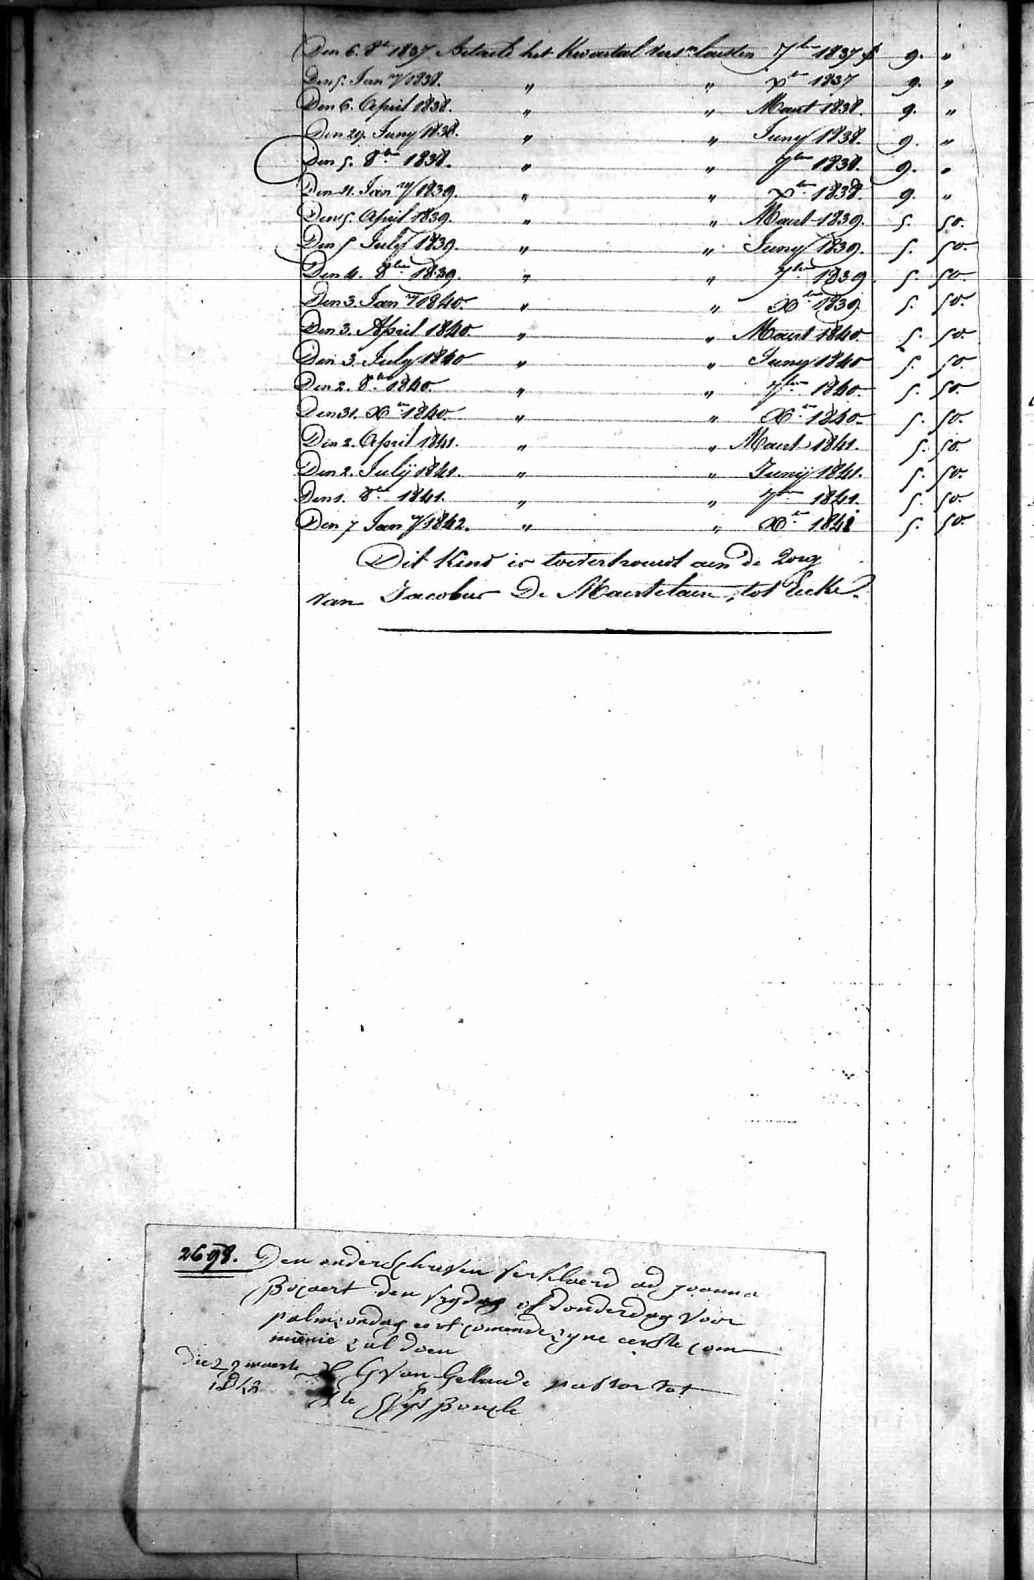 Den 6. 8re 1837 Betaeld het Kwartael verst. laetsten 7bre 1837 f 9. "
Den 5. Jan ry 1838. " " Xre 1837 9. "
Den 6. April 1838. " " Maert 1838. 9. "
Den 29. Juny 1838. " " Juny 1838. 9. "
Den 5. 8re 1838. " " 7bre 1838. 9. "
Den 11. Jan ry 1839. " " Xre 1838. 9. "
Den 5. April 1839. " " Maert 1839. 5. 50.
Den 5 July 1839. " " Juny 1839. 5. 50.
Den 4. 8bre 1839. " " 7bre 1839 5. 50.
Den 3. Jan ry 1840. " " Xbre 1839 5. 50.
Den 3. April 1840 " " Maert 1840. 5. 50.
Den 3. July 1840 " " Juny 1840 5. 50.
Den 2. 8re 1840. " " 7bre 1840. 5. 50.
Den 31. Xre 1840. " " Xre 1840. 5. 50.
Den 2. April 1841. " " Maert 1841. 5. 50.
Den 2. Julij 1841. " " Junij 1841. 5. 50.
Den 1. 8re 1841. " " 7bre 1841. 5. 50.
Den 7 Jan ry 1842. " " Xre 1841 5. 50.
Dit Kind is toevertrouwt aen de Zorg
van Jacobus De Maertelaere, tot Eecke.
2698. Den onderschreven verklaerd ad joanna
Bogaert den vrydag of donderdag voor
palmzondag eerst comende zyne eerste com
munie zal doen
die 22 maerte G Van Gellaude pastor tot
1843